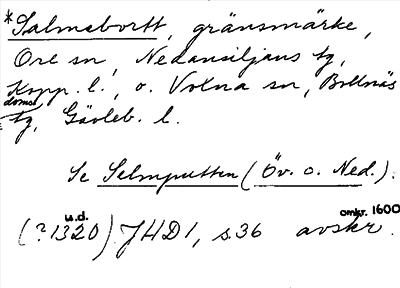 *Salmabortt, gränsmärke,
Ore sn, Nedansiljans tg,
Kopp. l., o. Voxna sn, Bollnäs
doms
tg, Gävleb. l.
Se Selmputten (Öv. o. Ned.).
u.d. omkr. 1600
(?1320) JHD1, s.36 avskr.